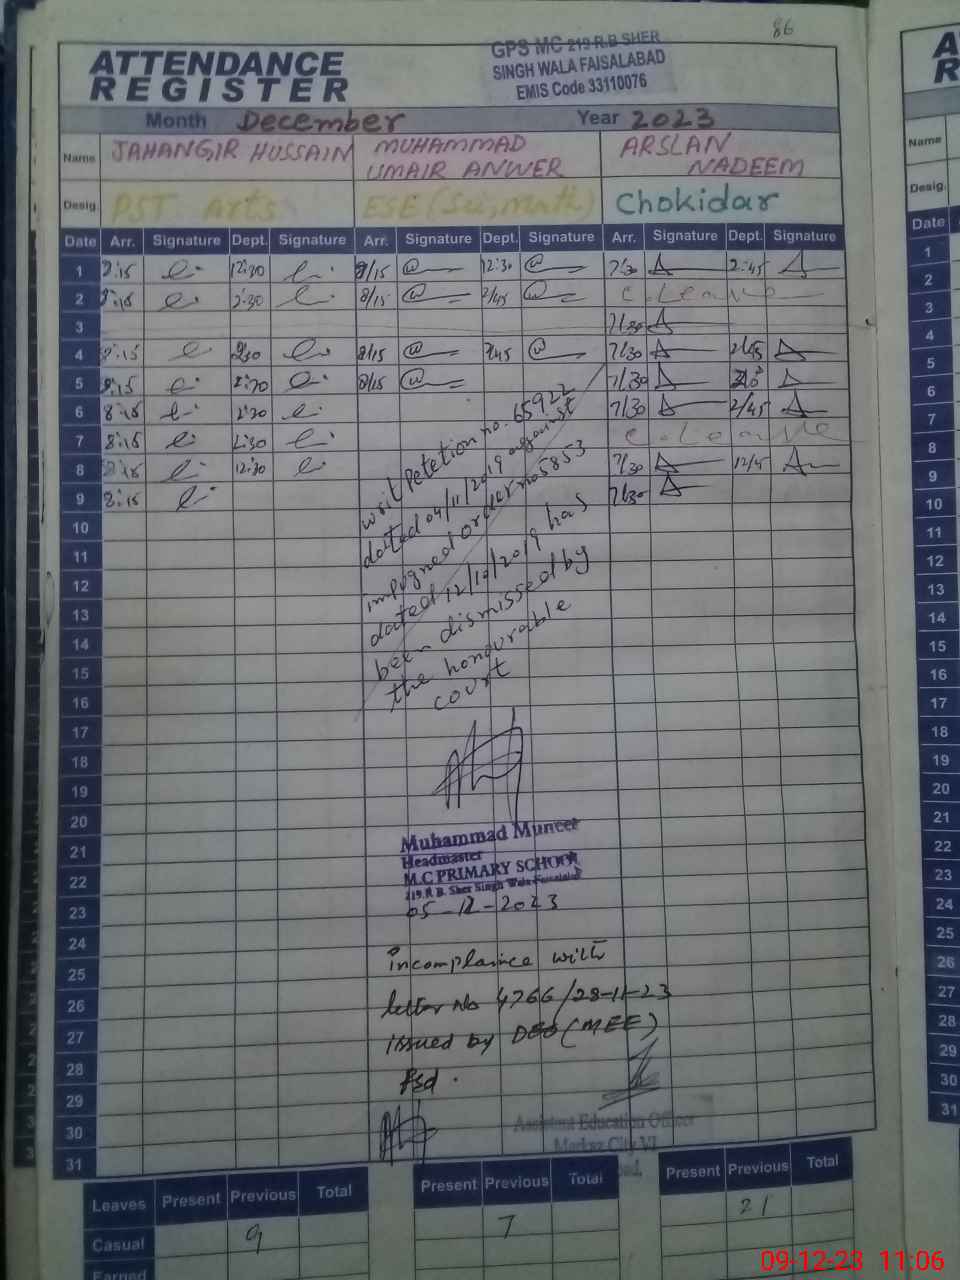 86
ATTENDANCE
REGISTER
GPS MC 219 R.B SHER
SINGH WALA FAISALABAD
EMIS Code 33110076
Month December Year 2023
Name JAHANGIR HUSSAIN MUHAMMAD UMAIR ANWER ARSLAN NADEEM
Desig. PST Arts ESE (Sci, Math) Chokidar
Date Arr. Signature Dept. Signature Arr. Signature Dept. Signature Arr. Signature Dept. Signature
1 8:15 12:30 8/15 12:30 7:30 2:45
2 8:15 2:30 8/15 2/45 C. Leave
3 7/30
4 8:15 2:30 8/15 2/45 7/30 2/45
5 8:15 2:30 8/15 7/30
6 8:15 2:30 7/30 2/45
7 8:15 2:30 C. Leave
8 8:15 12:30 7/30 12/45
9 8:15 7:30
10
11
12
13
14
15
16
17
18
19
20
21
22
23
24
25
26
27
28
29
30
31
writ Petetion no. 65922
dated 04/11/2019 against
impugned order no 5853
dated 12/10/2019 has
been dismissed by
the honourable
court
Muhammad Muneer
Headmaster
M.C PRIMARY SCHOOL
219 R.B. Sher Singh Wala Faisalabad
05-12-2023
incomplaince with
letter No 4766/28-11-23
issued by DEO (MEE)
Fsd.
Assistant Education Officer
Markaz City VI
Leaves Present Previous Total Present Previous Total Present Previous Total
Casual 9 7 21
Earned
A
R
Name
Desig.
Date
1
2
3
4
5
6
7
8
9
10
11
12
13
14
15
16
17
18
19
20
21
22
23
24
25
26
27
28
29
30
31
09-12-23 11:06